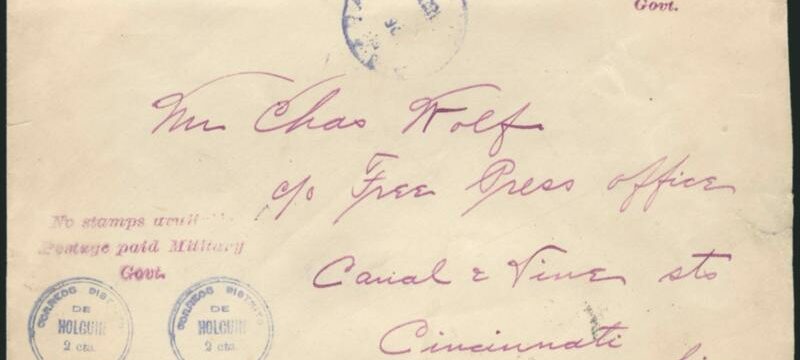 Govt.
Mr Chas Wolf
c/o Free Press office
No stamps
Postage paid Military
Govt.
Canal & Vine sts
Cincinnati
CORREOS DISTRITO
DE
HOLGUIN
2 cts.
CORREOS DISTRITO
DE
HOLGUIN
2 cts.